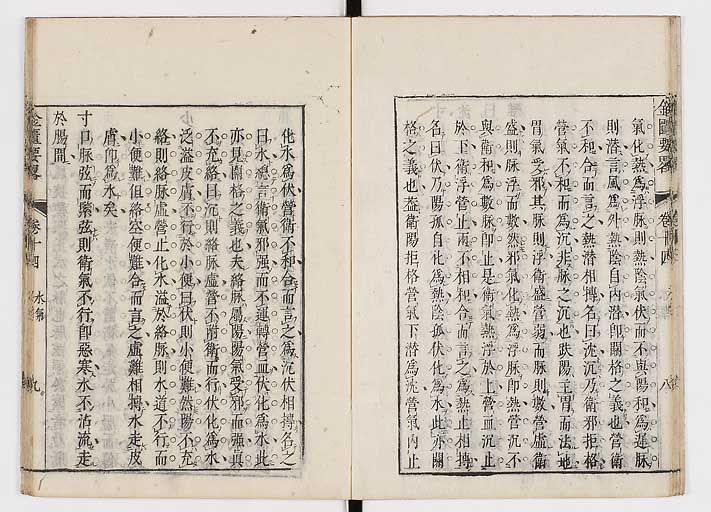 氣化熱爲浮脉則熱陰氣伏而不與陽和爲遲脉
則潜言風爲外熱陰自內潜卽關格之義也營衛
不和合而言之熱潜相搏名曰沈沉乃衛邪拒格
營氣不和而爲沉非脉之沉也趺陽主胃而法地
胃氣受邪其脉則浮衛盛營弱而脉則數營虛衛
盛則脉浮而數然邪氣化熱爲浮脉卽熱營沉不
與衛和爲數脉卽止是衛氣熱浮於上營血沉止
於下衛浮營止兩不相和合而言之爲熱止相搏
名曰伏乃陽孤自化爲熱陰孤伏化爲水此亦關
格之義也蓋衛陽拒格營氣下潜爲沈營氣內止
金匱要畧
卷十四
八
化水爲伏營衛不和合而言之爲沉伏相搏名之
曰水總言衛氣邪强而不運轉營血伏化爲水此
亦見關格之義也夫絡脉屬陽陽氣受邪而强眞
不充絡曰沉則絡脉虛營不前衛而行伏化爲水
泛溢皮膚不行於小便曰伏則小便難然陽不充
絡則絡脉虛營止化水溢於絡脉則水道不行而
小便難但絡空便難合而言之虛難相搏水走皮
膚卽爲水矣
寸口脉弦而緊弦則衛氣不行卽惡寒水不沾流走
於腸間
金匱要畧
卷十四
水氣
九